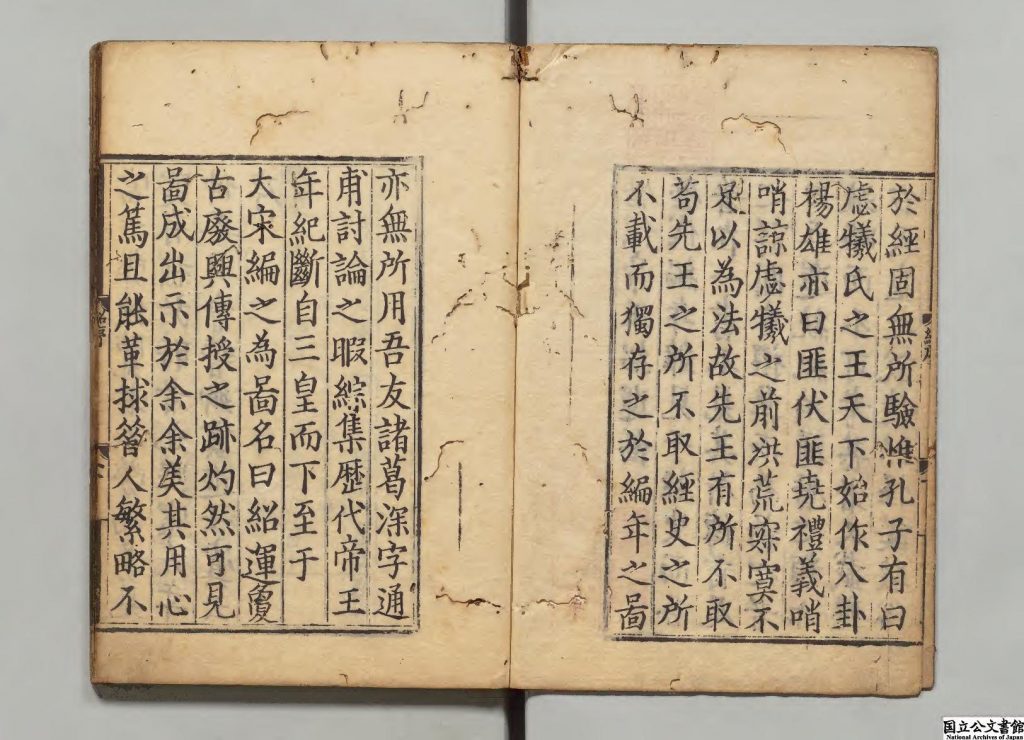 於經固無所驗惟孔子有曰
虙犧氏之王天下始作八卦
楊雄亦曰匪伏匪堯禮義哨
哨諒虙犧之前洪荒寂寞不
足以為法故先王有所不取
苟先王之所不取經史之所
不載而獨存之於編年之啚
亦無所用吾友諸葛深字通
甫討論之暇綜集歷代帝王
年紀斷自三皇而下至于
大宋編之為啚名曰紹運啚
古廢興傳授之跡灼然可見
啚成出示於余余美其用心
之篤且能革捄昝人繁略不
国立公文書館
National Archives of Japan